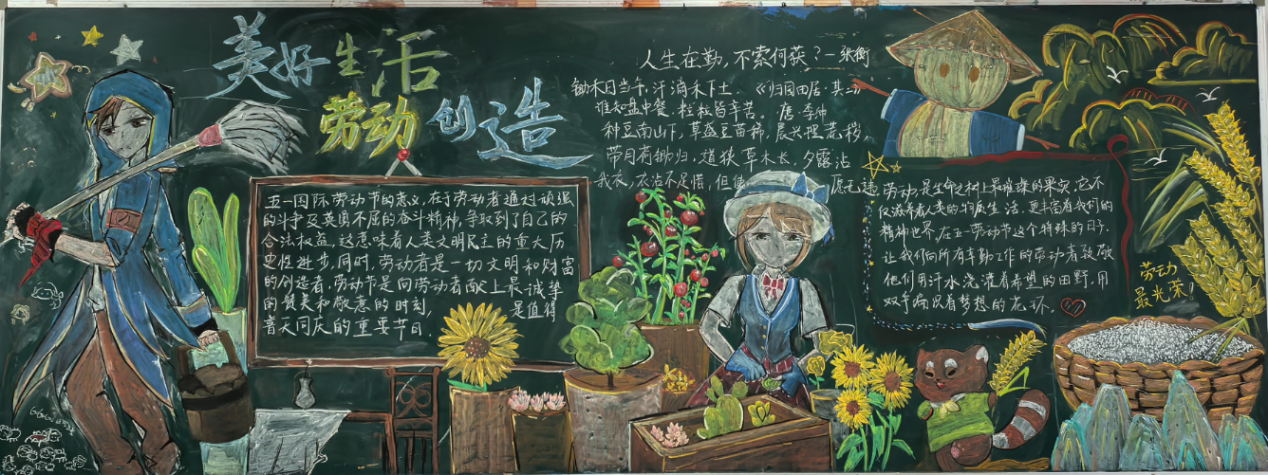 美好生活
劳动创造
人生在勤,不索何获?—张衡
锄禾日当午,汗滴禾下土.《归园田居·其三》
谁知盘中餐,粒粒皆辛苦。唐·李绅
种豆南山下,草盛豆苗稀,晨兴理荒秽,
带月荷锄归,道狭草木长,夕露沾
我衣,衣沾不足惜,但使愿无违
五一国际劳动节的意义,在于劳动者通过顽强
的斗争及英勇不屈的奋斗精神,争取到了自己的
合法权益,这意味着人类文明民主的重大历
史性进步,同时,劳动者是一切文明和财富
的创造者,劳动节是向劳动者献上最诚挚
的赞美和敬意的时刻,是值得
普天同庆的重要节日.
劳动,是生命之树上最璀璨的果实,它不
仅滋养着人类的物质生活,更丰富着我们的
精神世界,在五一劳动节这个特殊的日子,
让我们向所有辛勤工作的劳动者致敬
他们用汗水浇灌着希望的田野,用
双手编织着梦想的花环.
劳动
最光荣!